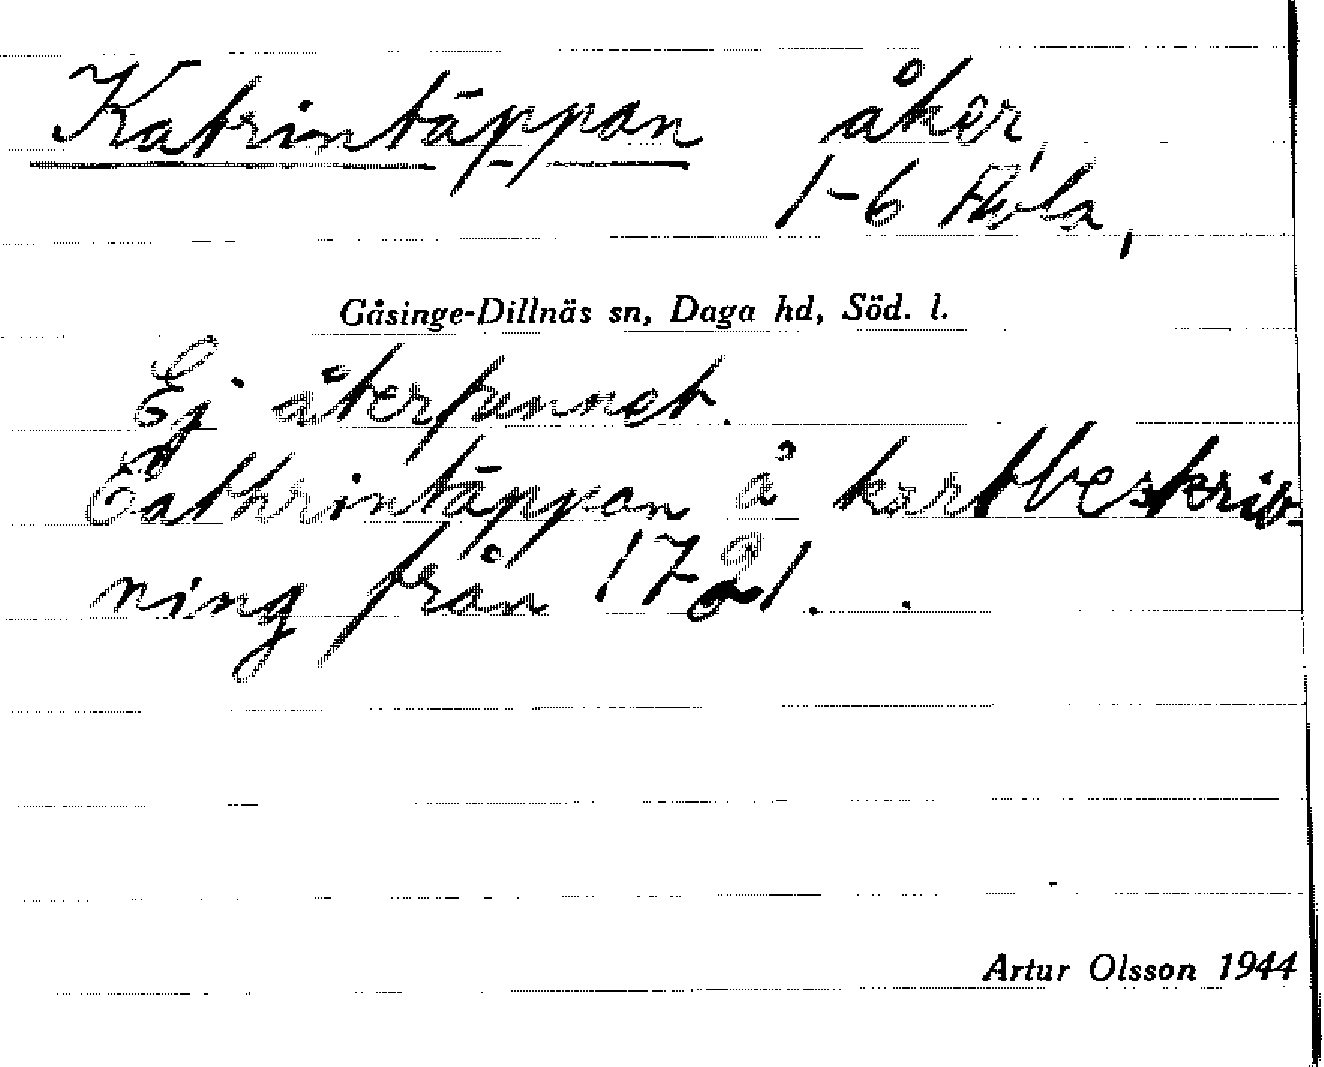 Katrintäppan åker,
1-6
Gåsinge-Dillnäs sn, Daga hd, Söd. l.
Ej återfunnet.
Cathrintäppan å kartbeskriv-
ning från 1721.
Artur Olsson 1944